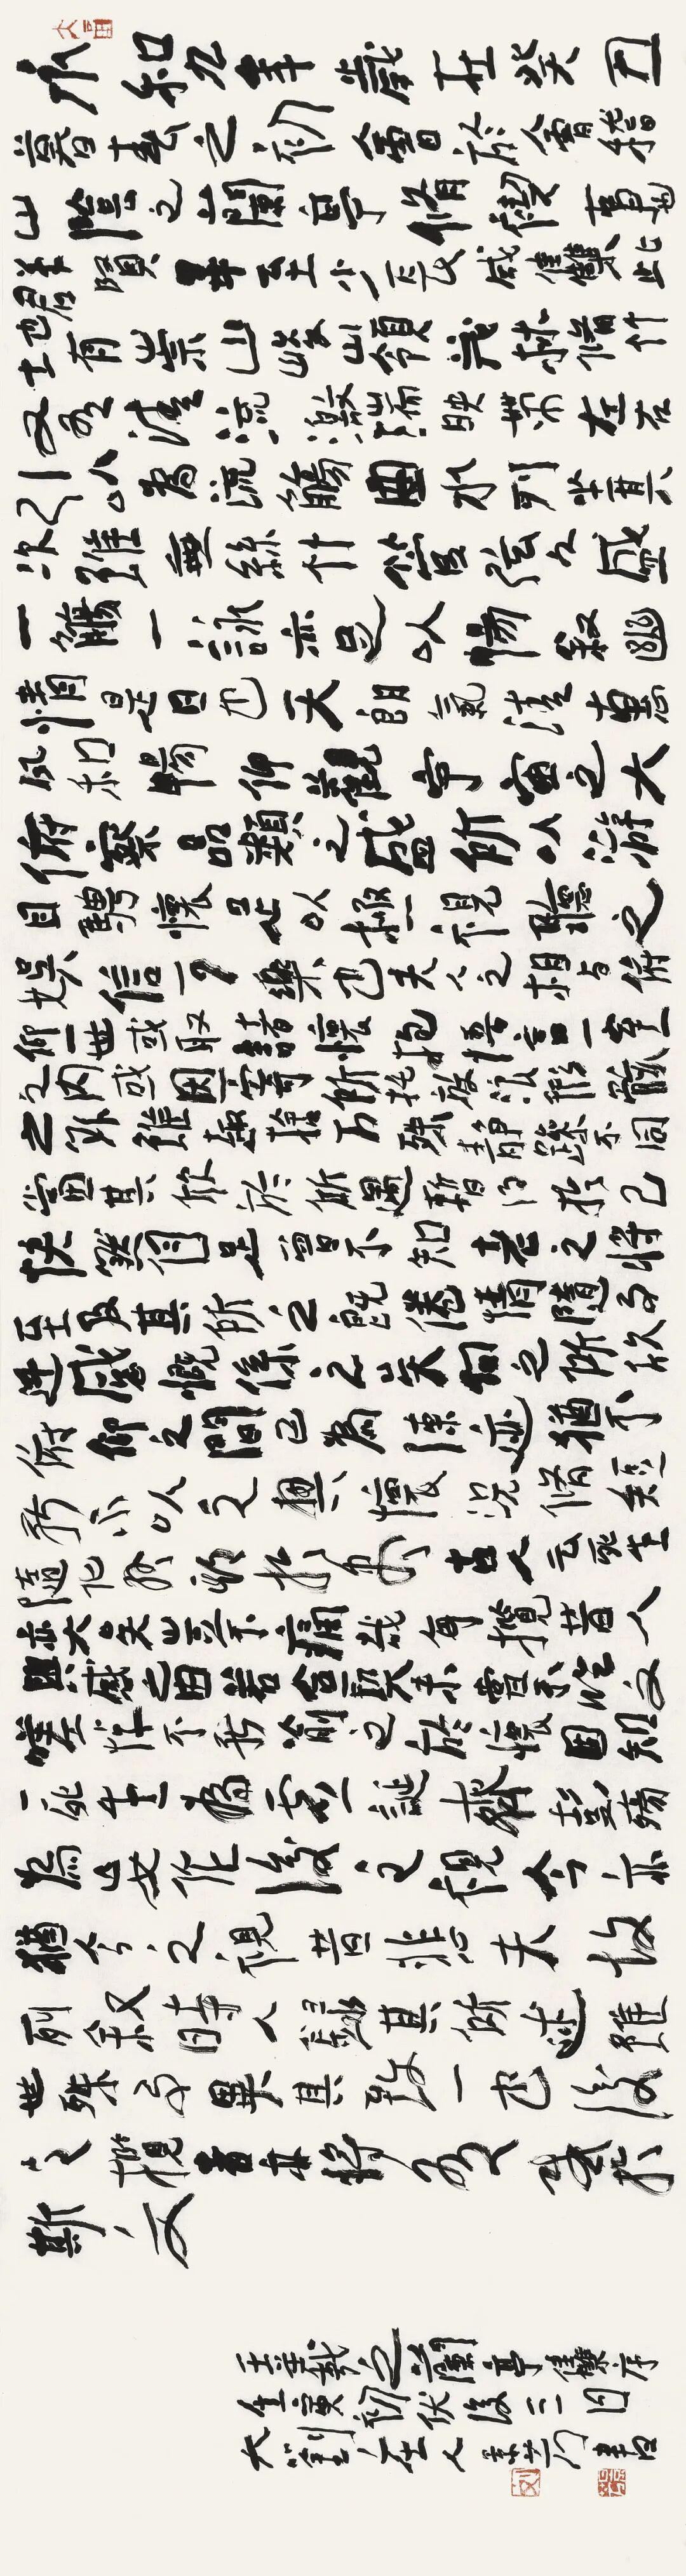 永和九年歲在癸丑
暮春之初會於會稽
山陰之蘭亭脩禊事也
羣賢畢至少長咸集此
地有崇山峻領茂林脩竹
又有清流激湍映帶左右
引以為流觴曲水列坐其
次雖無絲竹管弦之盛
一觴一詠亦足以暢敘幽
情是日也天朗氣清惠
風和暢仰觀宇宙之大
俯察品類之盛所以遊
目騁懷足以極視聽之
娛信可樂也夫人之相與俯
仰一世或取諸懷抱悟言一室
之內或因寄所託放浪形骸
之外雖趣捨萬殊靜躁不同
當其欣於所遇暫得於己
快然自足曾不知老之將
至及其所之既倦情隨事
遷感慨係之矣向之所欣
俯仰之間已為陳迹猶不
能不以之興懷況脩短
隨化終期於盡古人云死生
亦大矣豈不痛哉每攬昔人
興感之由若合一契未嘗不臨文
嗟悼不能喻之於懷固知
一死生為虛誕齊彭殤
為妄作後之視今亦
猶今之視昔悲夫故
列叙時人錄其所述雖
世殊事異其致一也後
之攬者亦將有感於
斯文
王羲之蘭亭集序
壬寅初伏後三日
大劉莊人書